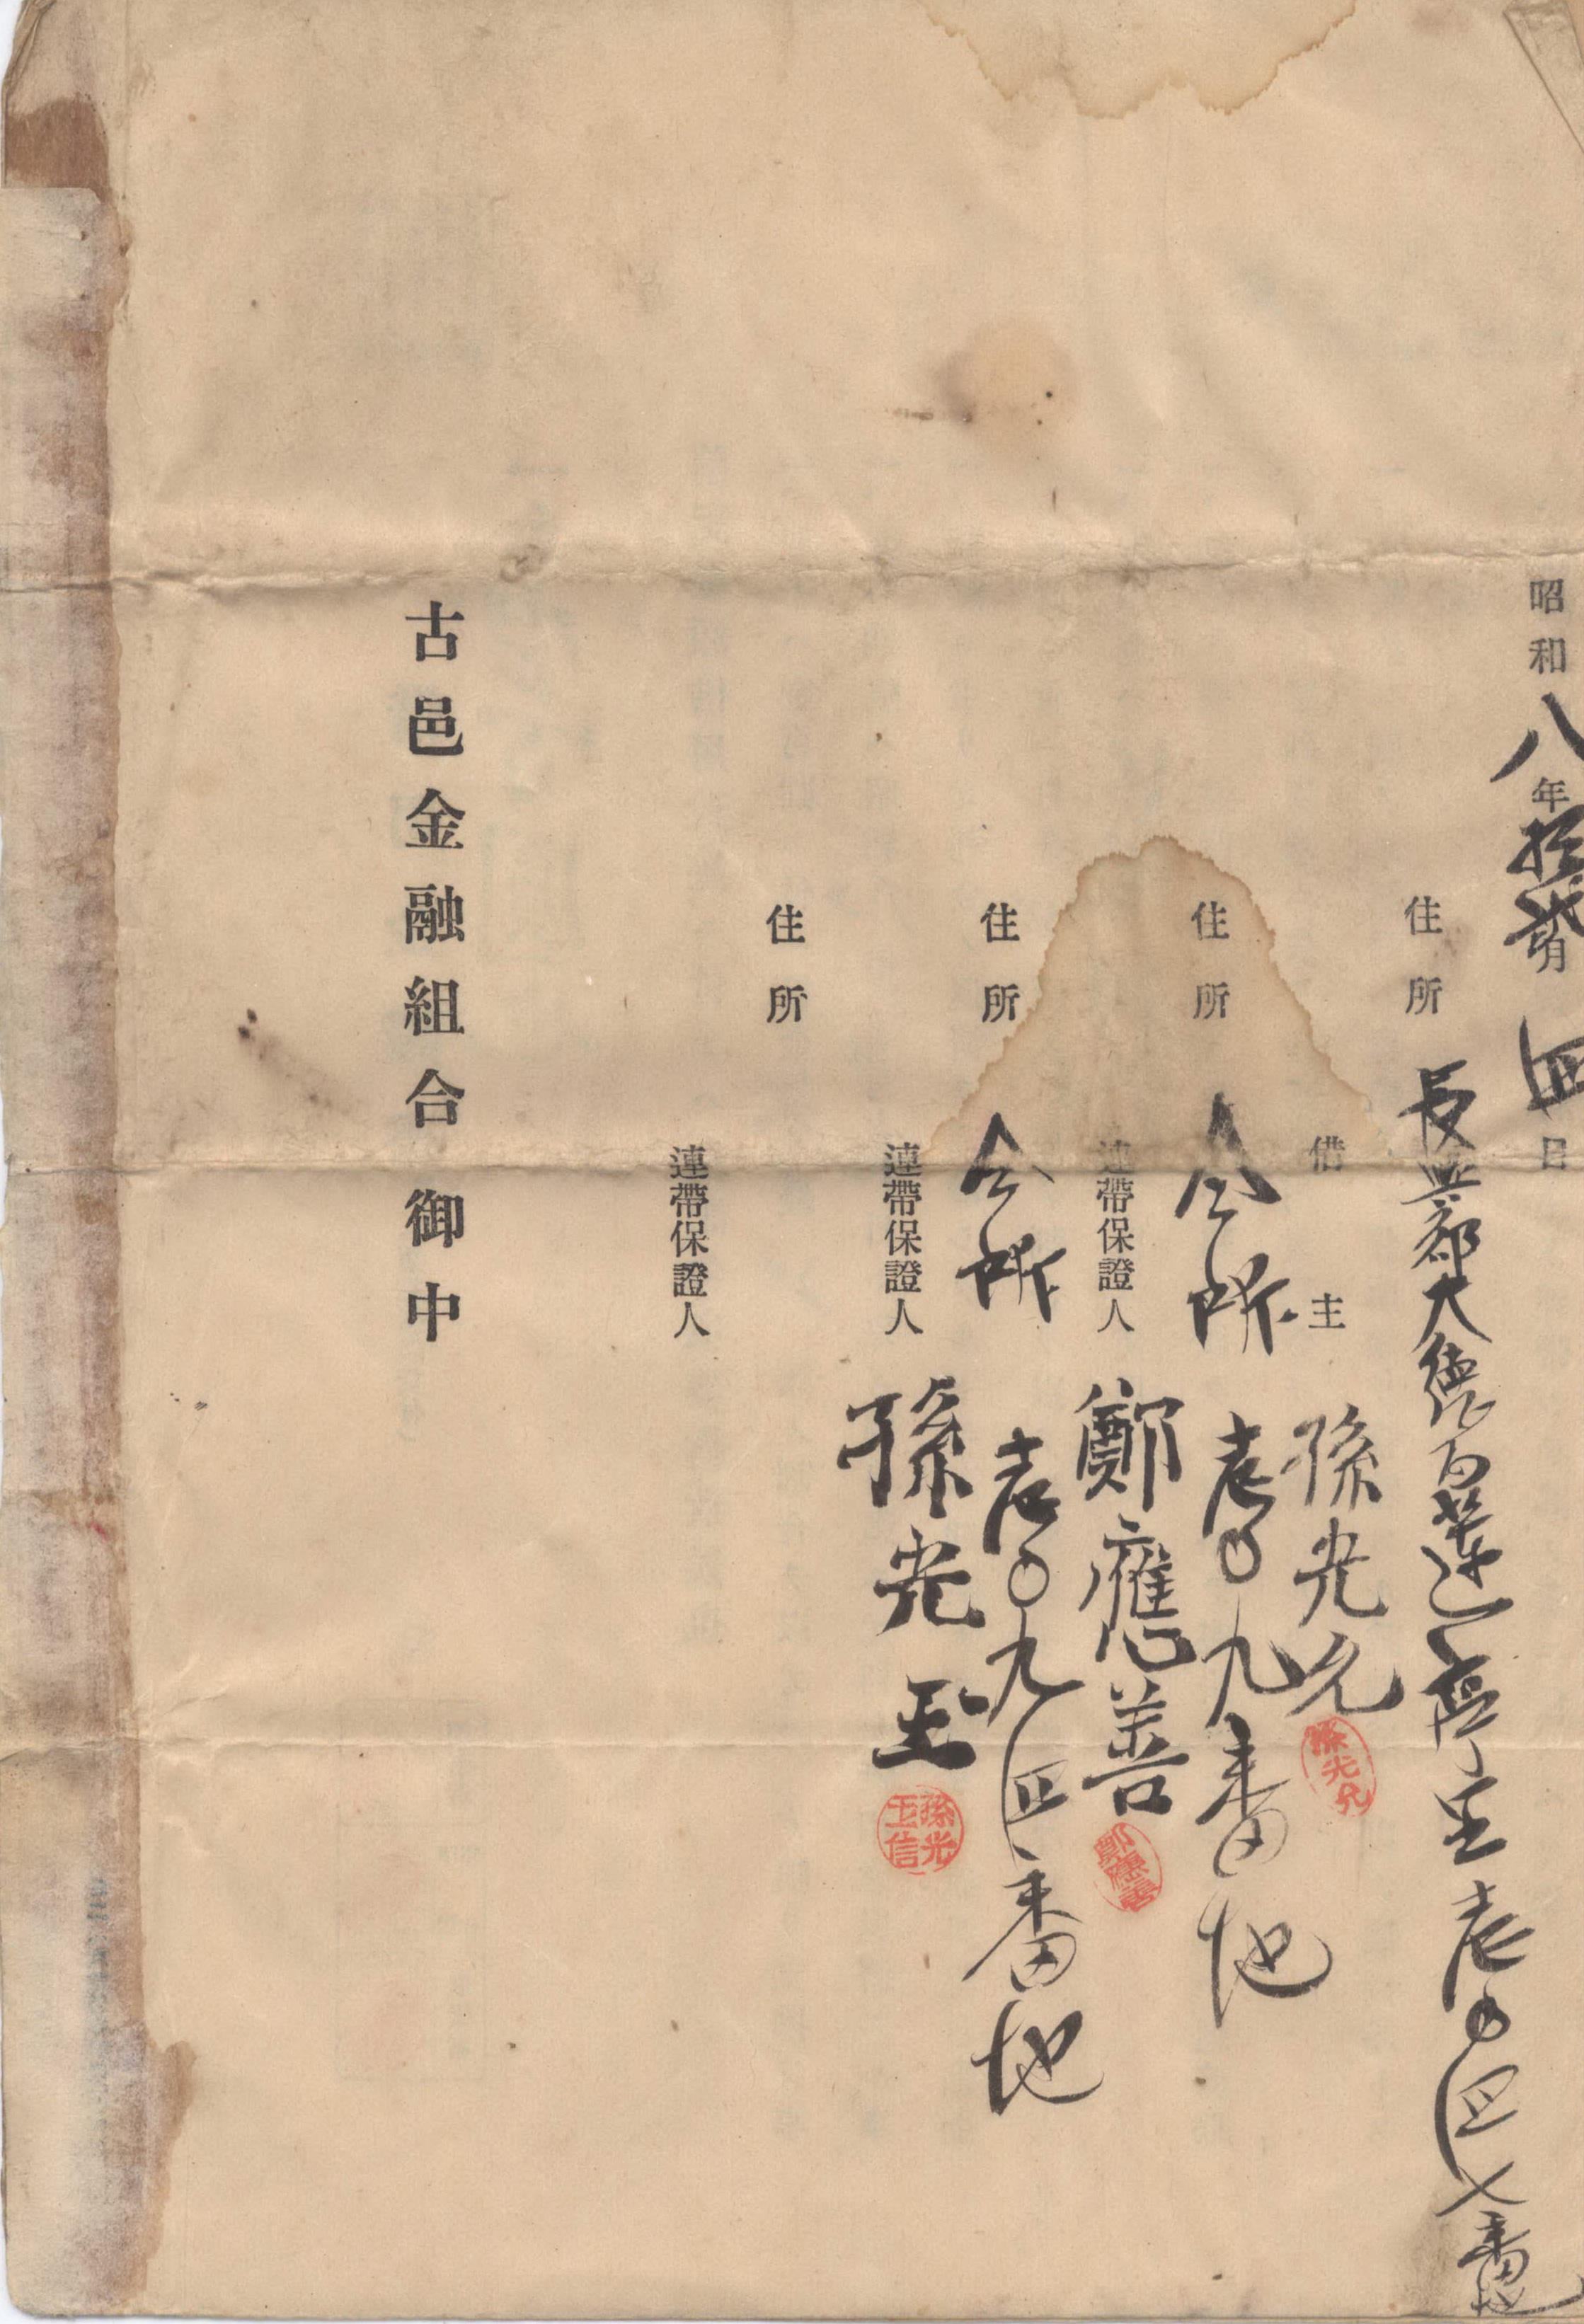 昭和八年拾貳月四日
住所 長興郡大德面蓮亭里壱〇四七番地
借主 孫光允
孫光允
住所 仝所 壱〇九番地
連帶保證人 鄭應善
鄭應善
住所 仝所 壱〇九四番地
連帶保證人 孫光玉
孫光玉信
住所
連帶保證人
古邑金融組合 御中